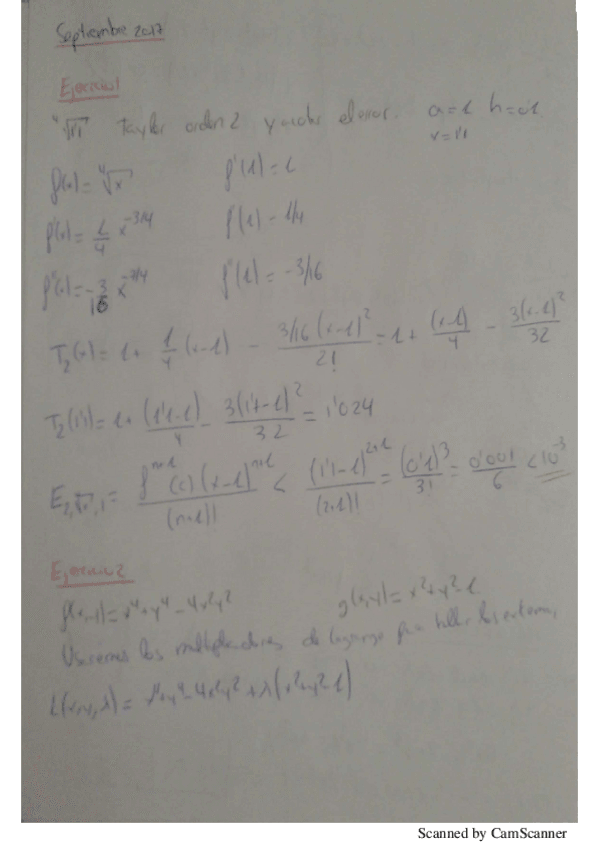 Septiembre 2017
Ejercicio 1
⁴√1'1 Taylor orden 2 y acotar el error. a=1 h=0'1
x=1'1
f(x)=⁴√x f'(1)=1
f'(x)=1/4 x^(-3/4) f'(1)=1/4
f''(x)=-3/16 x^(-7/4) f''(1)=-3/16
T₂(x)=1+1/4(x-1) - 3/16(x-1)²/2! = 1+(x-1)/4 - 3(x-1)²/32
T₂(1'1)=1+(1'1-1)/4 - 3(1'1-1)²/32 = 1'024
= f^(n+1)(c)(x-1)^(n+1)/(n+1)! < (1'1-1)^(2+1)/(2+1)! = (0'1)³/3! = 0'001/6 < 10^-3
Ejercicio 2
f(x,y)=x⁴+y⁴-4x²y² g(x,y)=x²+y²-1
Usaremos los multiplicadores de Lagrange para hallar los extremos
L(x,y,λ)=x⁴+y⁴-4x²y²+λ(x²+y²-1)
Scanned by CamScanner